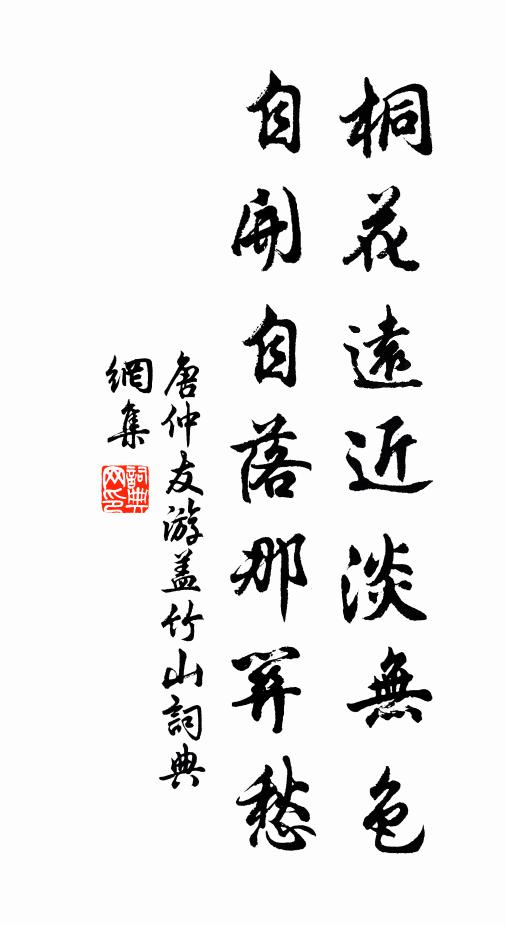 桐花遠近淡無色
自開自落那筭愁
唐仲友游盖竹山詞典
網集
詞典
网印